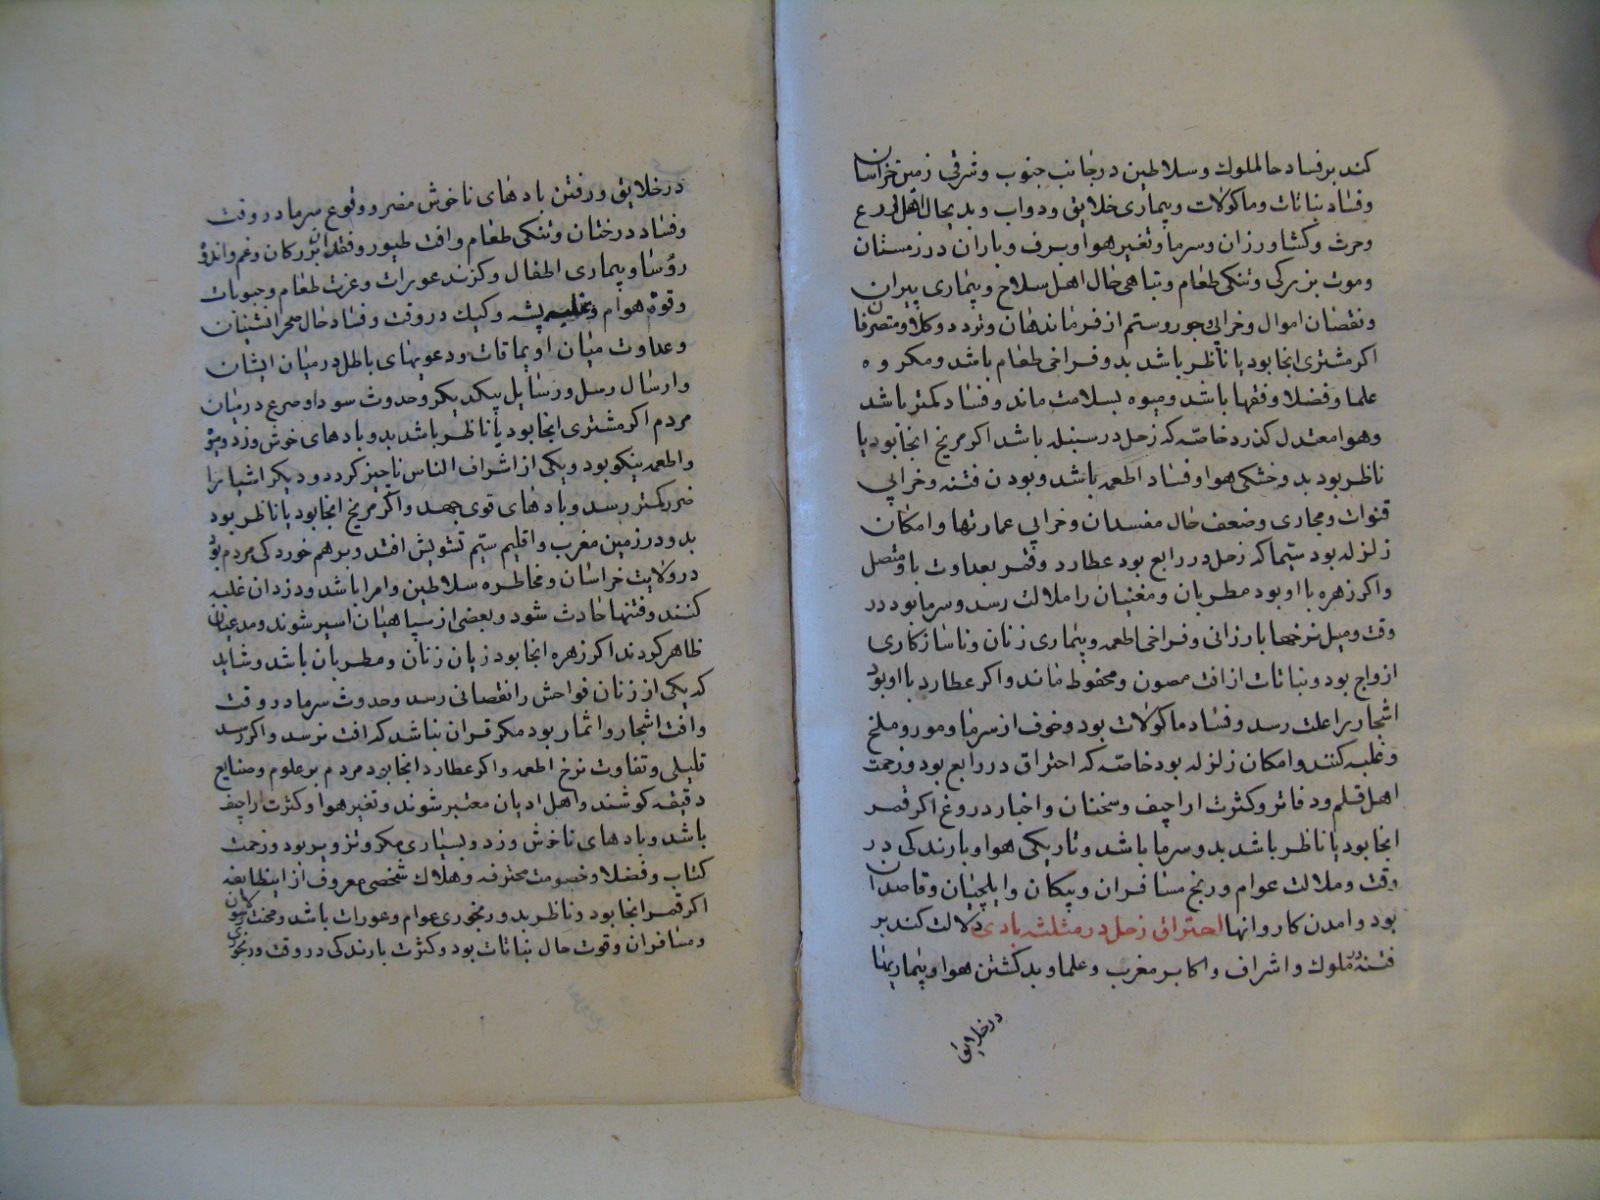 کند بر فساد حال ملوک و سلاطین در جانب جنوب و شرقی زمین خراسان
و فساد نباتات و ماکولات و بیماری خلایق و دواب و بدیحال اهل زرع
و حرث و کشاورزان و سرما و تغیر هوا و برف و باران در زمستان
و موت بزرکی و تنکی طعام و تباهی حال اهل سلاح و بیماری پیران
و نقصان اموال و خرابی جور و ستم از فرماندهان و تردد وکلا و متصرفان
اکر مشتری انجا بود یا ناظر باشد بدو فراخی طعام باشد و مکروه
علما و فضلا و فقها باشد و میوه بسلامت ماند و فساد کمتر باشد
و هوا معتدل کذرد خاصه که زحل در سنبله باشد اکر مریخ انجا بود یا
ناظر بود بدو خشکی هوا و فساد اطعمه باشد و بودن فتنه و خرابی
قنوات و مجاری و ضعف حال مفسدان و خرابی عمارتها و امکان
زلزله بود سیما که زحل در رابع بود عطارد و قمر بعداوت با و متصل
و اکر زهره با او بود مطربان و مغنیان را ملالت رسد و سرما بود در
وقت و میل نرخها بارزانی و فراخی اطعمه و بیماری زنان و ناسازکاری
ازواج بود و نباتات از افت مصون و محفوظ ماند و اکر عطارد با او بود
اشجار را علت رسد و فساد ماکولات بود و خوف از سرما و مور و ملخ
و غلبه کنند و امکان زلزله بود خاصه که احتراق در رابع بود و زحمت
اهل قلم و دفاتر و کثرت اراجیف و سخنان و اخبار دروغ اکر قمر
انجا بود یا ناظر باشد بدو سرما باشد و تاریکی هوا و بارندکی در
وقت و ملالت عوام و رنج مسافران و پیکان و ایلچیان و قاصدان
بود و امدن کاروانها احتراق زحل در مثلثه بادی دلالت کند بر
فتنه ملوک و اشراف و اکابر مغرب و علما و بد کشتن هوا و بیماریها
در خلایق
در خلایق و رفتن بادهای ناخوش مضر و وقوع سرما در وقت
و فساد درختان و تنکی طعام و افت طیور و فقدان بزرکان و غم و اندوه
رؤسا و بیماری اطفال و کزند عورات و عزت طعام و حبوبات
و قوة هوام و غلبه پشه و کیک در وقت و فساد حال صحرانشینان
و عداوت میان اویماقات و دعویهای باطل در میان ایشان
و ارسال رسل و رسایل بیکدیکر و حدوث سودا و صرع در میان
مردم اکر مشتری انجا بود یا ناظر باشد بدو بادهای خوش وزد و میوه
و اطعمه نیکو بود و یکی از اشراف الناس ناچیز کردد و دیکر اشیا را
ضرر کمتر رسد و بادهای قوی جهد و اکر مریخ انجا بود یا ناظر بود
بدو در زمین مغرب و اقلیم سیم تشویش افتد و برهم خوردکی مردم بود
در ولایت خراسان و مخاطره سلاطین و امرا باشد و دزدان غلبه
کنند و فتنها حادث شود و بعضی از سپاهیان اسیر شوند و مدعیان
ظاهر کردند اکر زهره انجا بود زیان زنان و مطربان باشد و شاید
که یکی از زنان فواحش را نقصانی رسد و حدوث سرما در وقت
و افت اشجار و اثمار بود مکر قران نباشد که افت نرسد و اکر رسد
قلیلی و تفاوت نرخ اطعمه و اکر عطارد انجا بود مردم بر علوم و صنایع
دقیقه کوشند و اهل ادیان معتبر شوند و تغیر هوا و کثرت اراجیف
باشد و بادهای ناخوش وزد و بسیاری مکر و تزویر بود و زحمت
کتاب و فضلا و خصومت محترفه و هلاک شخصی معروف از اینطایفه
اکر قمر انجا بود و ناظر بدو رنجوری عوام و عورات باشد و محنت
و مسافران و قوت حال نباتات بود و کثرت بارندکی در وقت و رنجوری